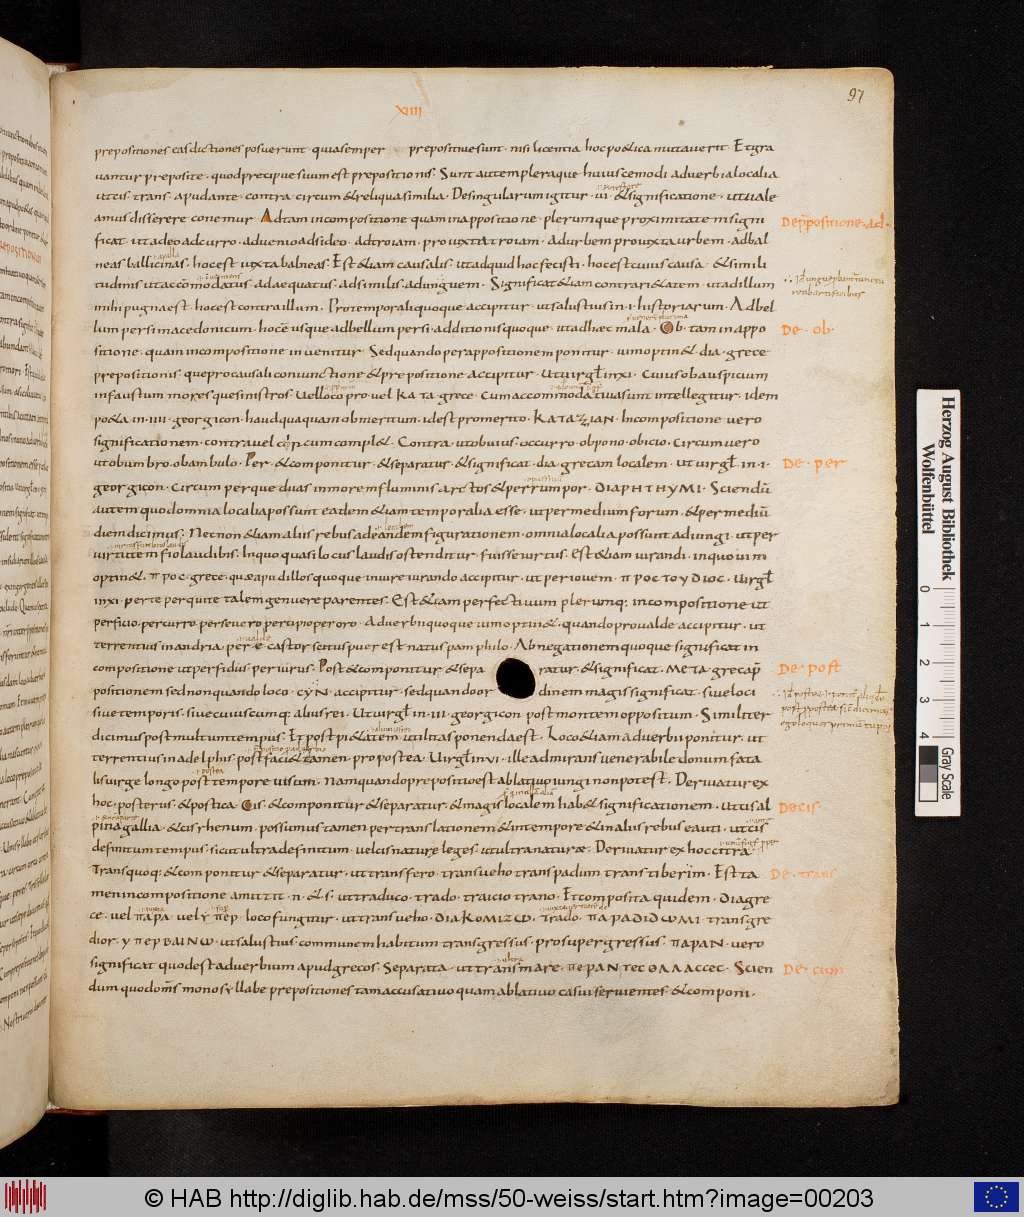 97
XIIII
prepositiones easdictiones posuerunt · quiasemper prepositiuesunt · nisi licentia hocpo&ica mutauerit · Etgra
uantur preposite · quodprecipue suum est prepositionis · Sunt autem pleraque huiuscemodi aduerbia localia
utcis · trans · apud ante · contra · circum &reliqua similia · Desingularum igitur · ui · &significatione · utuale
amus disserere conemur · Ad tam incompositione quam inappositione · plerumque proximitatem signi
De ppositione · ad ·
ficat · ut adeo adcurro · aduenio adsideo · adtroiam · pro iuxta troiam · adurbem pro iuxta urbem · adbal
neas balli cinas · hocest iuxta balneas · Est &iam causalis · utadquid hoc fecisti · hocest cuius causa · &simili
tudinis utaccomodatus · adaequatus · adsimilus · adunguem · Significat &iam contrari&atem · utadillum
mihi pugna est · hocest contra illum · Protemporali quoque accipitur · ut salustius in · i · historiarum · Adbel
lum persi macedonicum · hoc ē usque adbellum persi · additionis quoque · ut adhec mala · Ob · tam in appo
De · ob ·
sitione · quam incompositione inuenitur · Sed quando per appositionem ponitur · uim optin& · dia · grece
prepositionis · que pro causali coniunctione &prepositione accipitur · Ut uirgł inxi · Cuius ob auspicium
infaustum mores que sinistros · Uel loco pro uel κατα · grece · Cum accommodatiua sunt intellegitur · idem
po&a in · iiii · georgicon · haud quaquam ob meritum · id est pro merito · In compositione uero
significationem · contra uel circum compl& · Contra · ut obuius · occurro · obpono · obicio · Circum uero
ut obumbro · obambulo · Per · &componitur · &separatur · &significat · dia grecam localem · ut uirgł · in · i ·
De · per
georgicon · Circum perque duas inmorem fluminis arctos &per rumpor · Sciendū
autem quod omnia localia possunt eadem &iam temporalia esse · ut per medium forum · &per mediū
diem dicimus · Nec non &iam aliis rebus ad eandem figurationem · omnia localia possunt adiungi · ut per
uirtutem fio laudibilis · In quo quasi locus laudis ostenditur · fuisse uirtus · Est &iam iurandi · in quo uim
optin& · προς · grece · quae apud illos quoque in iure iurando accipitur · ut per iouem · προς του διος · Uirgł
inxi · per te per qui te talem genuere parentes · Est &iam perfectiuum plerunq; in compositione ut
perficio · percurro · perseuero percipio peroro · Aduerbii quoque uim optin& · quando pro ualde accipitur · ut
terrentius in andria · per e · castor scitus puer est natus pamphilo · Abnegationem quoque significat in
compositione ut perfidus periurus · Post &componitur &sepa ratur · &significat · μετα · grecā pp̄
De · post
positionem sed non quando loco · cyn · accipitur · sed quando or dinem magis significat · siue loci
siue temporis · siue cuiuscumq; alius rei · Ut uirgł in · iii · georgicon post montem oppositum · Similiter
dicimus post multum tempus · Et post pi&atem · utilitas ponenda est · Loco &iam aduerbii ponitur · ut
terrentius in adelphis · post faci& tamen · pro postea · Uirgł in vi · ille admirans uenerabile donum fata
lis uirge longo post tempore uisum · Namquando prepositio est ablatiuo iungi non potest · Deriuatur ex
hoc · posterus · &postica · Cis · &componitur &separatur · &magis localem hab& significationem · ut cis al
De cis ·
pina gallia · &cis rhenum · possumus tamen per translationem &in tempore &in aliis rebus eauti · ut cis
definitum tempus · sicut ultra definitum · uel cis nature leges · ut ultra naturae · Deriuatur ex hoc citra ·
Transquoq; &componitur &separatur · ut transfero · transueho trans padum trans tiberim · Est ta
De · trans
men in compositione amittit · n · & s · ut traduco · trado · traicio trano · Et composita quidem · Dia gre
ce · uel παρα uel υπερ loco fungitur · ut transueho · διακομιζω · trado · παραδιδωμι · trans gre
dior · υπερβαινω · ut salustius communem habitum transgressus · pro supergressus · περαν · uero
significat quod est aduerbium apud grecos · Separata · ut trans mare · Scien
De · cum
dum quod oms monosyllabe prepositiones tam accusatiuo quam ablatiuo casui seruientes &componi ·
Herzog August Bibliothek
Wolfenbüttel
0 1 2 3 4
Gray Scale
© HAB http://diglib.hab.de/mss/50-weiss/start.htm?image=00203